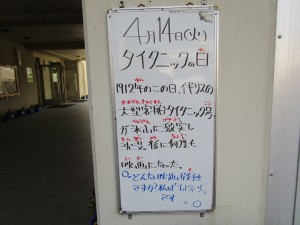 4月14日(火)
タイタニックの日
1912年のこの日、イギリスの
大型客船タイタニック号
が氷山に激突し
沈没 後に何度も
映画になった。
どんな映画が好き
ですか?私は
です